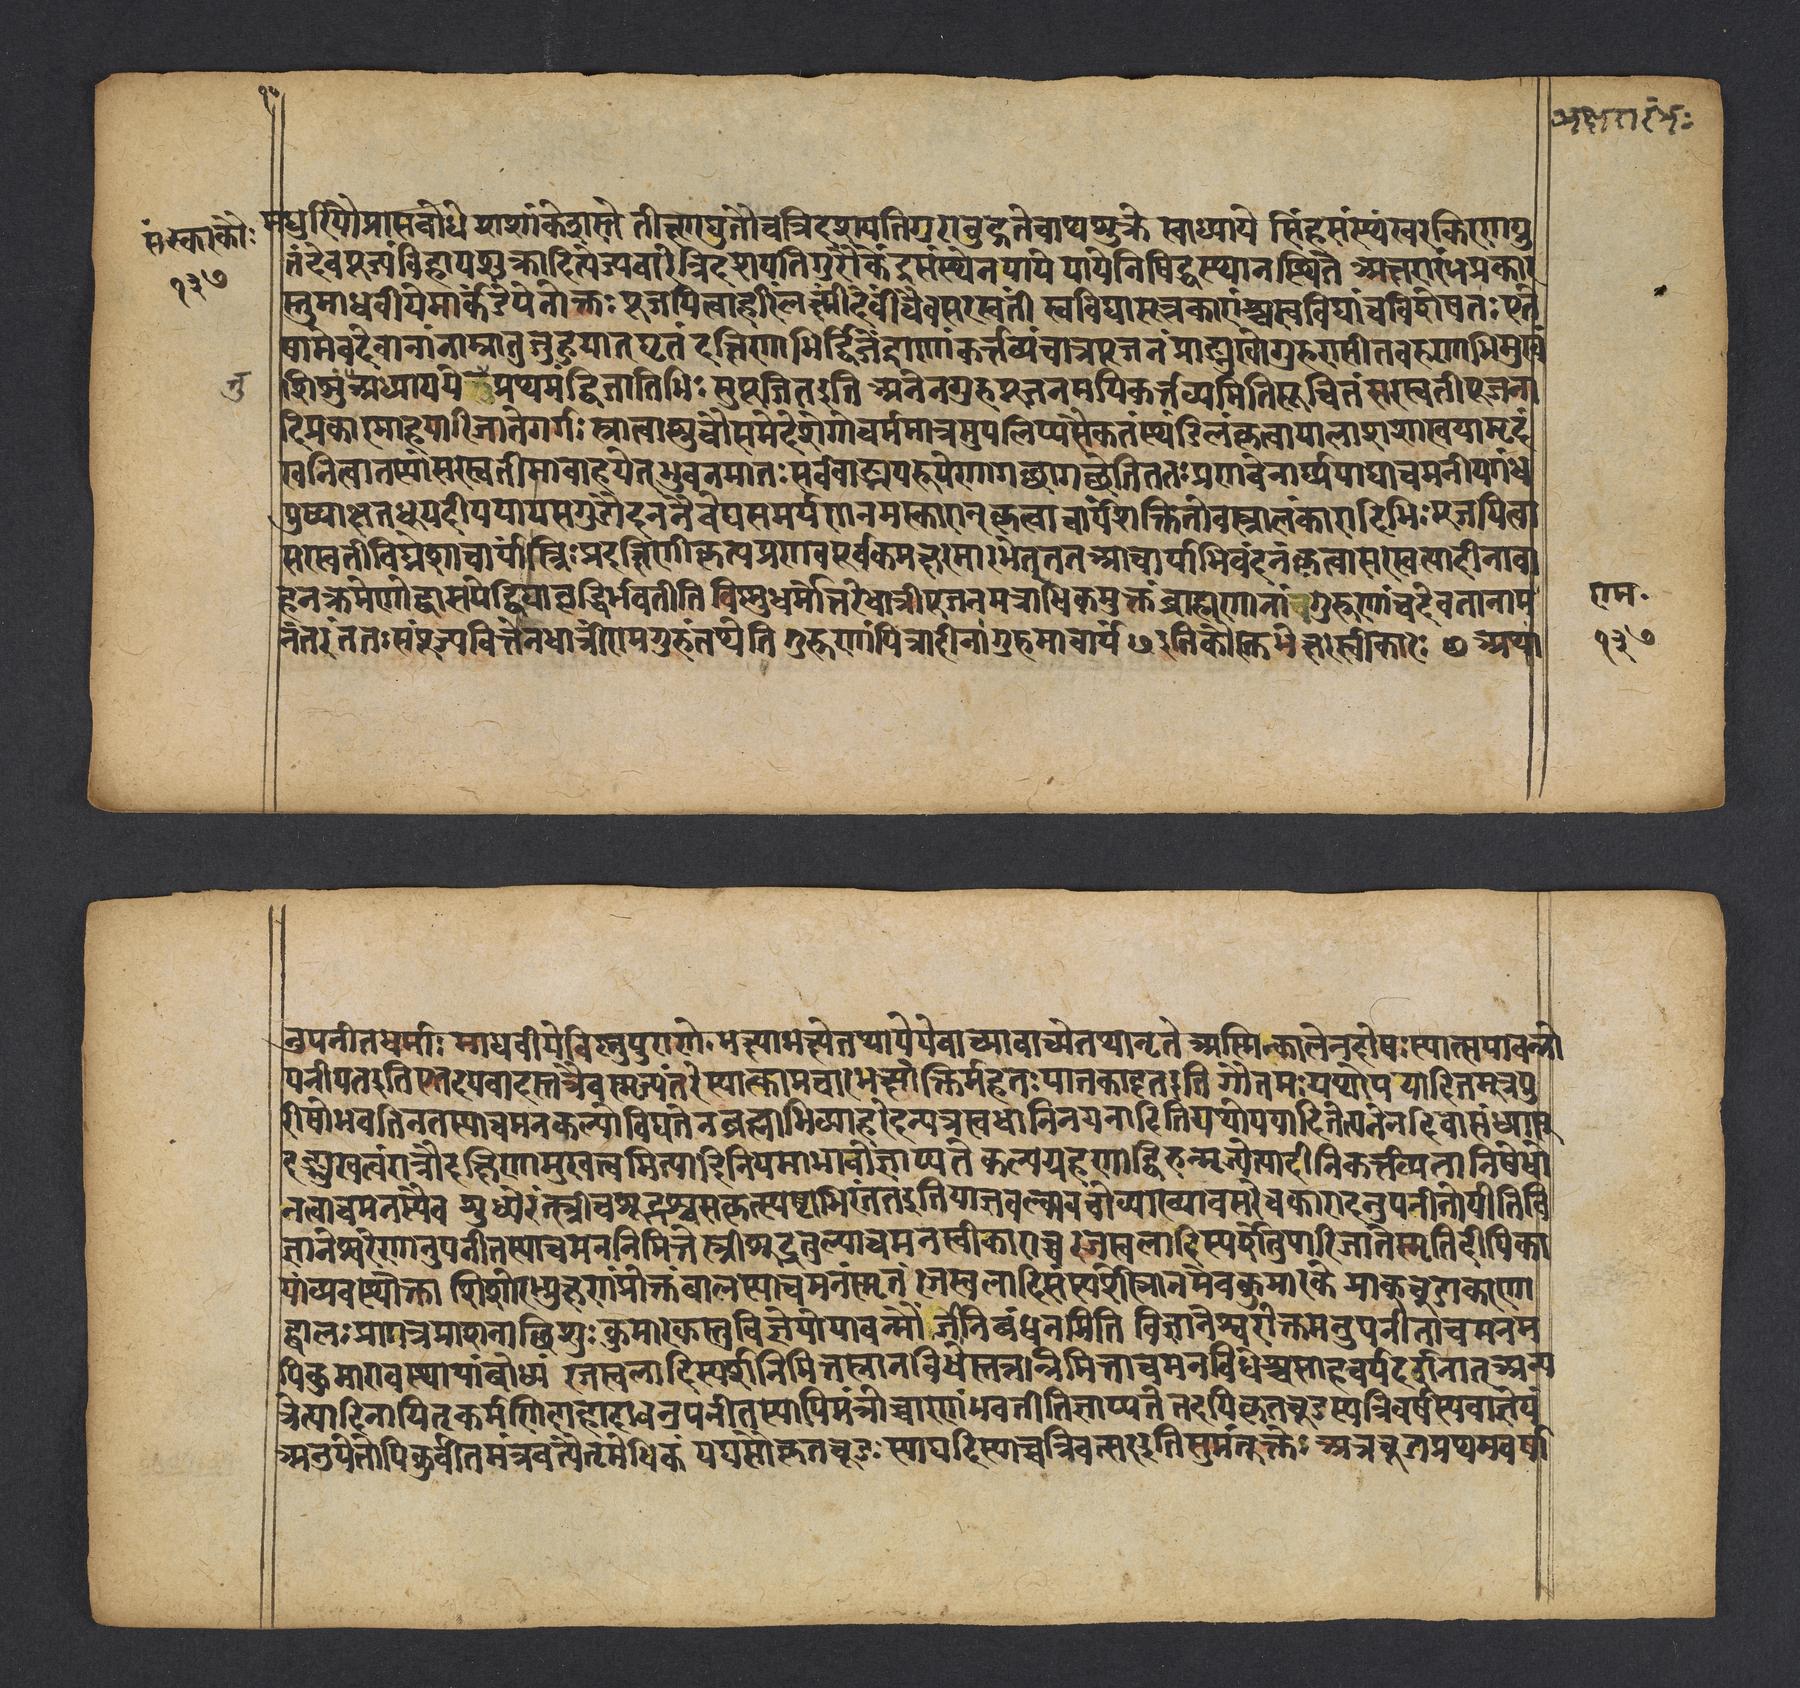 अक्षरारंभः
संस्कारकौः
१३७
मधुरिपौप्राप्तबोधे शशांकेशस्ते तीक्ष्णद्युतौचत्रिदशपतिगुरावुद्गतेवाप्यशुक्रे स्वाध्याये सिंहसंस्थं खरकिरणयु
तंदेवपूज्यंविहायशुक्रादित्येज्यवारे त्रिदशपतिगुरौकेंद्रसंस्थेनपापे पापेनिषिद्धस्थानस्थिते अक्षरारंभप्रकार
स्तुमाधवीयेमार्कंडेयेनोक्तः पूजयित्वाहरिंलक्ष्मींदेवींचैवसरस्वतीं स्वविद्यासूत्रकारांश्चस्वविद्यांचविशेषतः एते
षामेवदेवानांनाम्नातुजुहुयातघृतं दक्षिणाभिर्द्विजेंद्राणांकर्त्तव्यंचात्रपूजनं प्राङ्मुखोगुरुरासीतवरुणाभिमुखं
शिशुं अध्यापयेत्तुप्रथमंद्विजातिभिः सुपूजितइति अनेनगुरुपूजनमपिकर्त्तव्यमितिसूचितं सरस्वतीपूजना
नु
दिप्रकारमाहपारिजातेगर्गः स्नात्वाशुचौसमेदेशेगोचर्ममात्रमुपलिप्यसैकतंस्थंडिलंकृत्वापालाशशाखयामृदं
खनित्वातस्यांसरस्वतीमावाहयेत् भुवनमातः सर्ववाङ्मयरूपेणागच्छागच्छेतिततः प्रणवेनार्घ्यपाद्याचमनीयगंध
पुष्पाक्षतधूपदीपपायसगुडौदननैवेद्यसमर्पणनमस्कारान् कृत्वाचार्यंशक्तितोवस्त्रालंकारादिभिः पूजयित्वा
सरस्वतींविघ्नेशाचार्यांस्त्रिः प्रदक्षिणीकृत्यप्रणवपूर्वकमक्षरमारभेत् ततआचार्याभिवंदनंकृत्वासरस्वत्यादीनावा
हनक्रमेणोद्वासयेद्विद्यावृद्धिर्भवतीति विष्णुधर्मोत्तरेधात्रीपूजनमत्राधिकमुक्तं ब्राह्मणानांचगुरूणांचदेवतानाम
नंतरं ततः संपूज्यवित्तेनधात्रींरामगुरुंतथेति गुरूणांपित्रादीनां गुरुमाचार्यं ७ इतिकौस्तुभेक्षरस्वीकारः ७ अथा
राम.
१३७
नुपनीतधर्माः माधवीयेविष्णुपुराणे भक्ष्याभक्ष्येतथापेयेवाच्यावाच्येतथानृते अस्मिन्कालेनदोषः स्यात्सयावन्नो
पनीयतइति एतदपवादस्तत्रैवस्मृत्यंतरे स्यात्कामचारभक्ष्योक्तिर्महतः पातकादृतइति गौतमः यथोपपादितमूत्रपु
रीषोभवतिनतस्याचमनकल्पोविद्यतेनब्रह्माभिव्याहारेदन्यत्रस्वधानिनयनादितियथोपपादितेत्यनेनदिवासंध्यासू
दङ्मुखत्वंरात्रौदक्षिणामुखत्वमित्यादिनियमाभावोज्ञाप्यते कल्पग्रहणाद्विरुन्मृज्येत्यादीनिकर्त्तव्यतानिषेधो
नत्वाचमनस्यैव शुध्येरंतस्त्रीचशूद्रश्चसकृत्स्पृष्टाभिरंततइतियाज्ञवल्क्यवचोव्याख्यावसरेचकारादनुपनीतोपीतिवि
ज्ञानेश्वरेणानुपनीतस्याचमननिमित्तेस्त्रीशूद्रतुल्याचमनस्वीकाराच्च रजस्वलादिस्पर्शेतुपारिजातेस्मृतिदीपिका
यांव्यवस्थोक्ता शिशोरभ्युक्षणंप्रोक्तंबालस्याचमनंस्मृतं रजस्वलादिसंस्पर्शेस्नानमेवकुमारके प्राक्चूडाकरणा
द्बालः प्रागन्नप्राशनाच्छिशुः कुमारकस्तुविज्ञेयोयावन्मौंजीनिबंधनमिति विज्ञानेश्वरोक्तमनुपनीताचमनम
पिकुमारावस्थायांबोध्यं रजस्वलादिस्पर्शनिमित्तस्नानविधेस्तन्निमित्ताचमनविधेश्चसाहचर्यदर्शनात् अन्य
त्रेत्यादिनापितृकर्मणिदाहादावनुपनीतस्यापिमंत्रोच्चारणंभवतीतिज्ञाप्यते तदपिकृतचूडस्यत्रिवर्षस्यैवज्ञेयं
अनुपेतोपिकुर्वीतमंत्रवत्पैतृमेधिकं यद्यसौकृतचूडः स्याद्यदिस्याच्चत्रिवत्सरइतिसुमंतूक्तेः अत्रचूडाप्रथमवर्षा